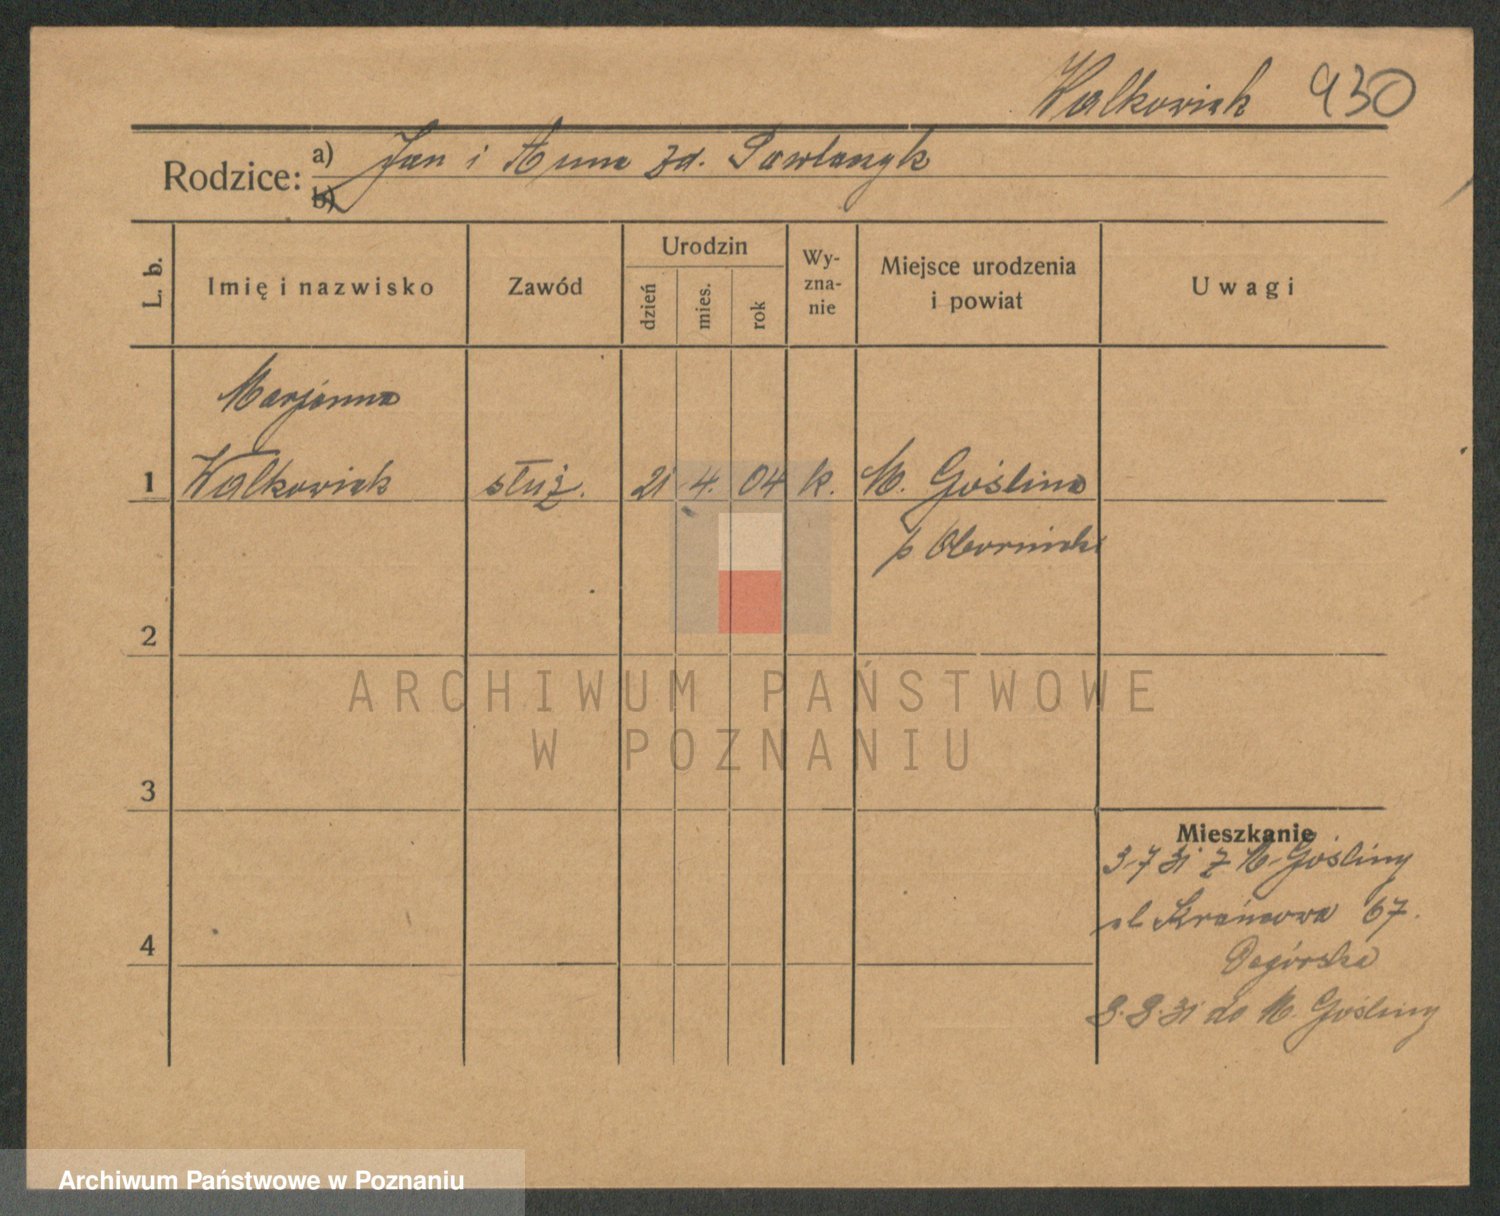 Walkowiak 930
Rodzice: a) Jan i Anna zd. Pawlaczyk
b)
L. b.
Imię i nazwisko
Zawód
Urodzin
dzień
mies.
rok
Wy-
zna-
nie
Miejsce urodzenia
i powiat
Uwagi
Marjanna
1 Walkowiak służ. 21 4. 04 k. M. Goślina
p Oborniki
2
ARCHIWUM PAŃSTWOWE
W POZNANIU
3
Mieszkanie
3-7 31 z M. Gośliny
ul 67.
4
8.8.31 do M. Gośliny
Archiwum Państwowe w Poznaniu